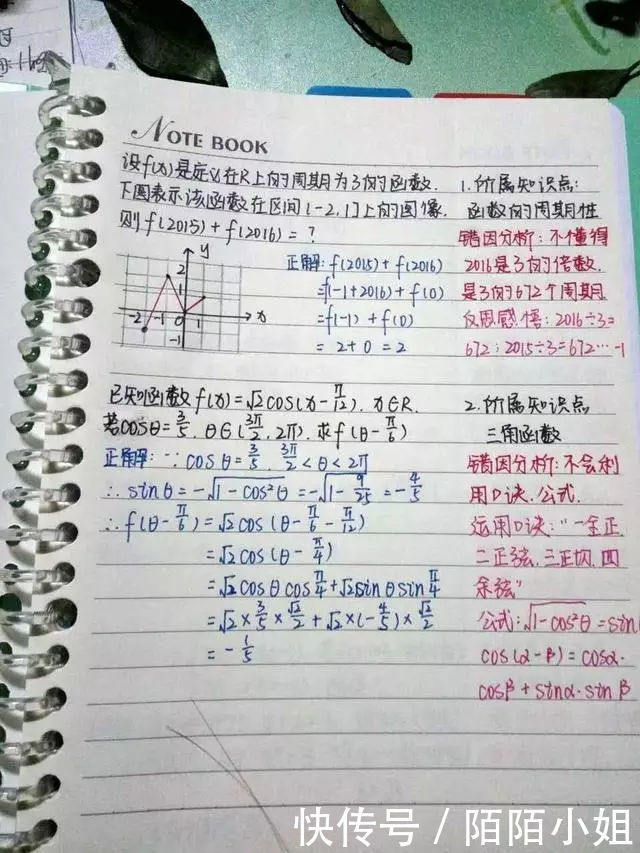 NOTE BOOK
设f(x)是定义在R上的周期为3的函数.
下图表示该函数在区间[-2,1]上的图像.
则f(2015)+f(2016)=?
y
2
1
-2 -1 0 1 x
-1
正解:f(2015)+f(2016)
=f(-1+2016)+f(0)
=f(-1)+f(0)
=2+0=2
1.所属知识点:
函数的周期性
错因分析:不懂得
2016是3的倍数.
是3的672个周期
反思感悟:2016÷3=
672;2015÷3=672…-1
已知函数f(x)=√2cos(x-π/12).x∈R.
若cosθ=3/5.θ∈(3π/2,2π).求f(θ-π/6)
正解:∵cosθ=3/5.3π/2<θ<2π
∴sinθ=-√1-cos²θ=-√1-9/25=-4/5
∴f(θ-π/6)=√2cos(θ-π/6-π/12)
=√2cos(θ-π/4)
=√2cosθcosπ/4+√2sinθsinπ/4
=√2×3/5×√2/2+√2×(-4/5)×√2/2
=-1/5
2.所属知识点
三角函数
错因分析:不会利
用口诀.公式.
运用口诀:"一全正.
二正弦.三正切.四
余弦"
公式:√1-cos²θ=sin
cos(α-β)=cosα·
cosβ+sinα·sinβ
快传号/陌陌小姐